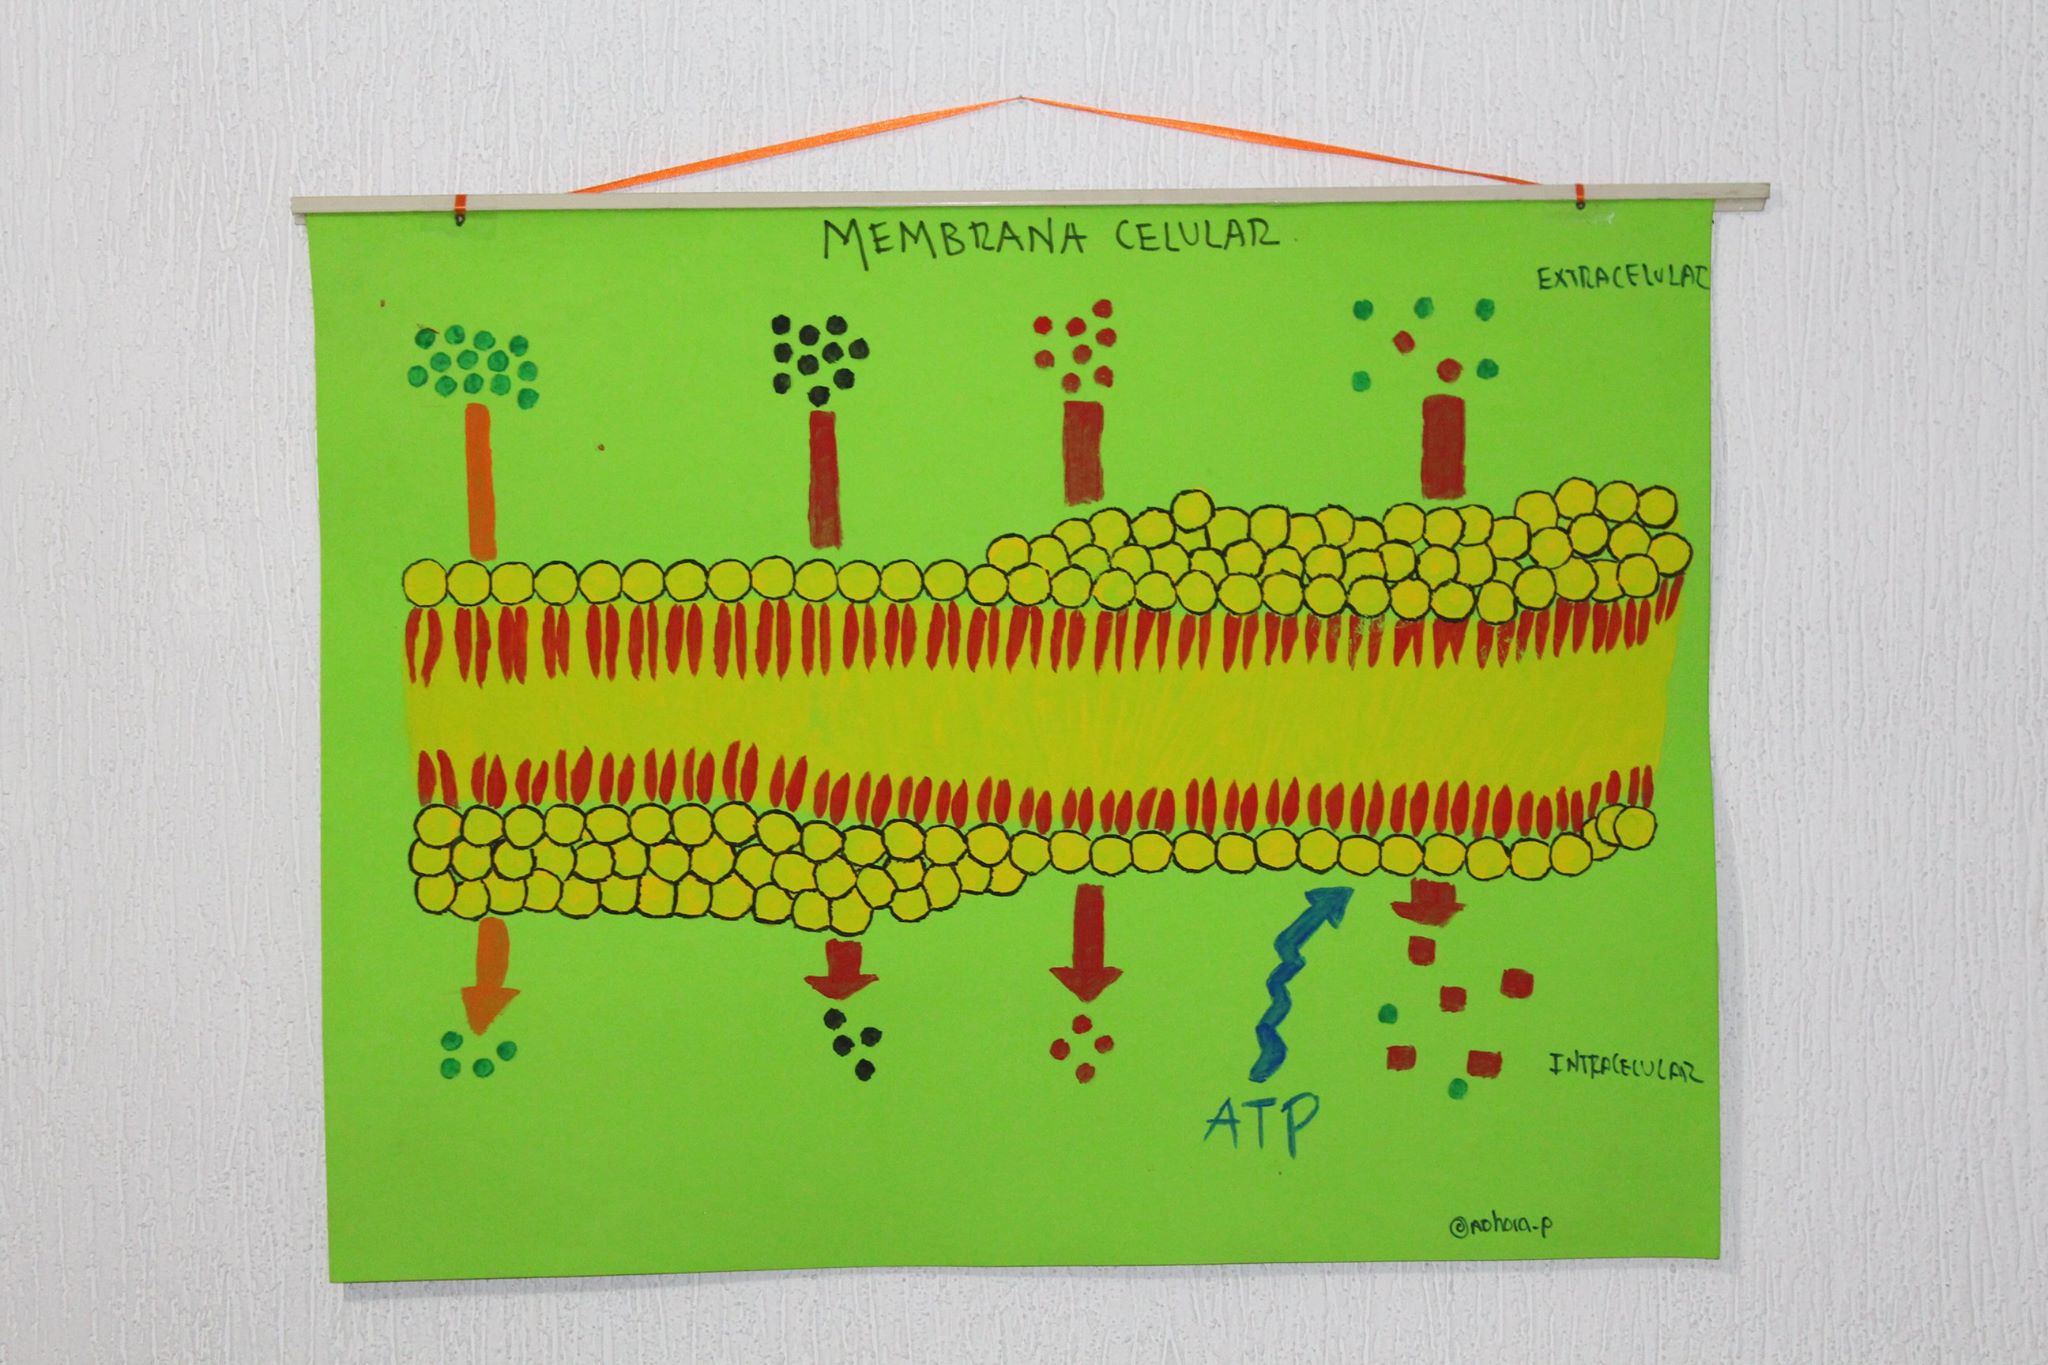 MEMBRANA CELULAR
EXTRACELULAR
INTRACELULAR
ATP